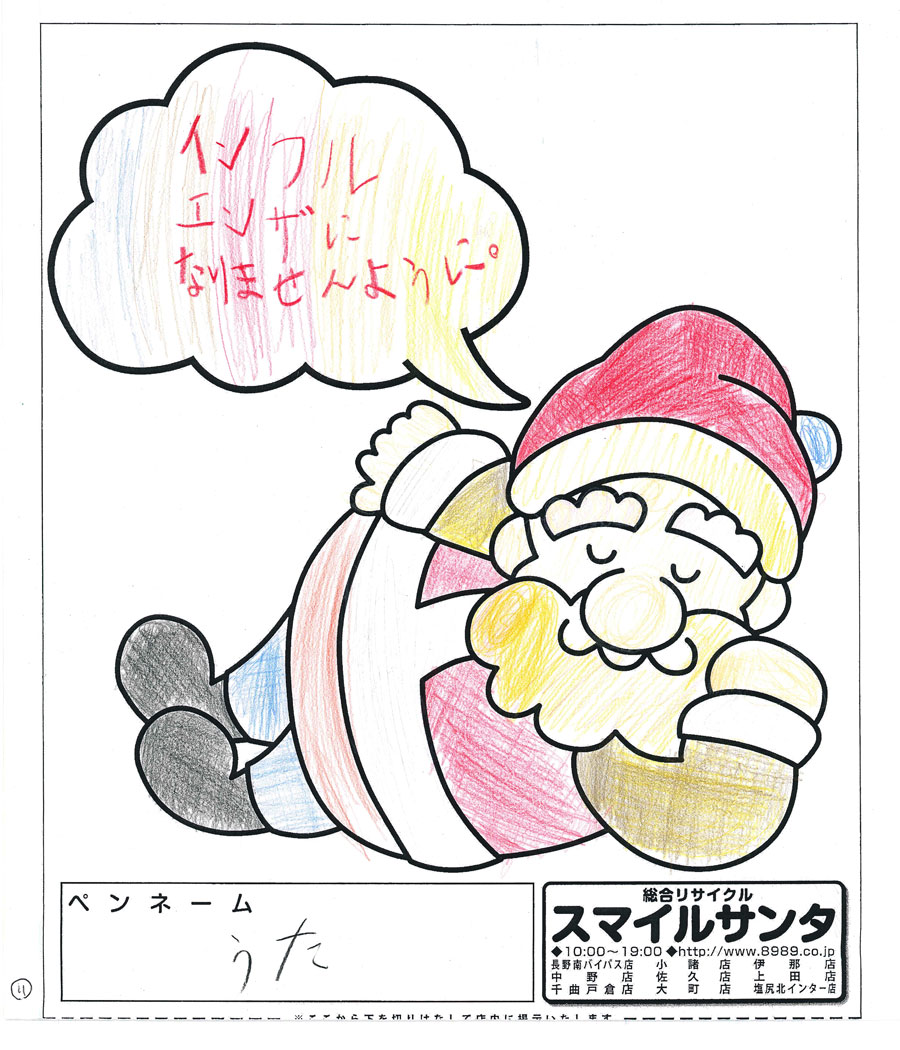 インフル
エンザに
なりませんように。
ペンネーム
うた
総合リサイクル
スマイルサンタ
◆10:00～19:00 ◆http://www.8989.co.jp
長野南バイパス店 小諸店 伊那店
中野店 佐久店 上田店
千曲戸倉店 大町店 塩尻北インター店
11
※ここから下を切りはなして店内に掲示いたします